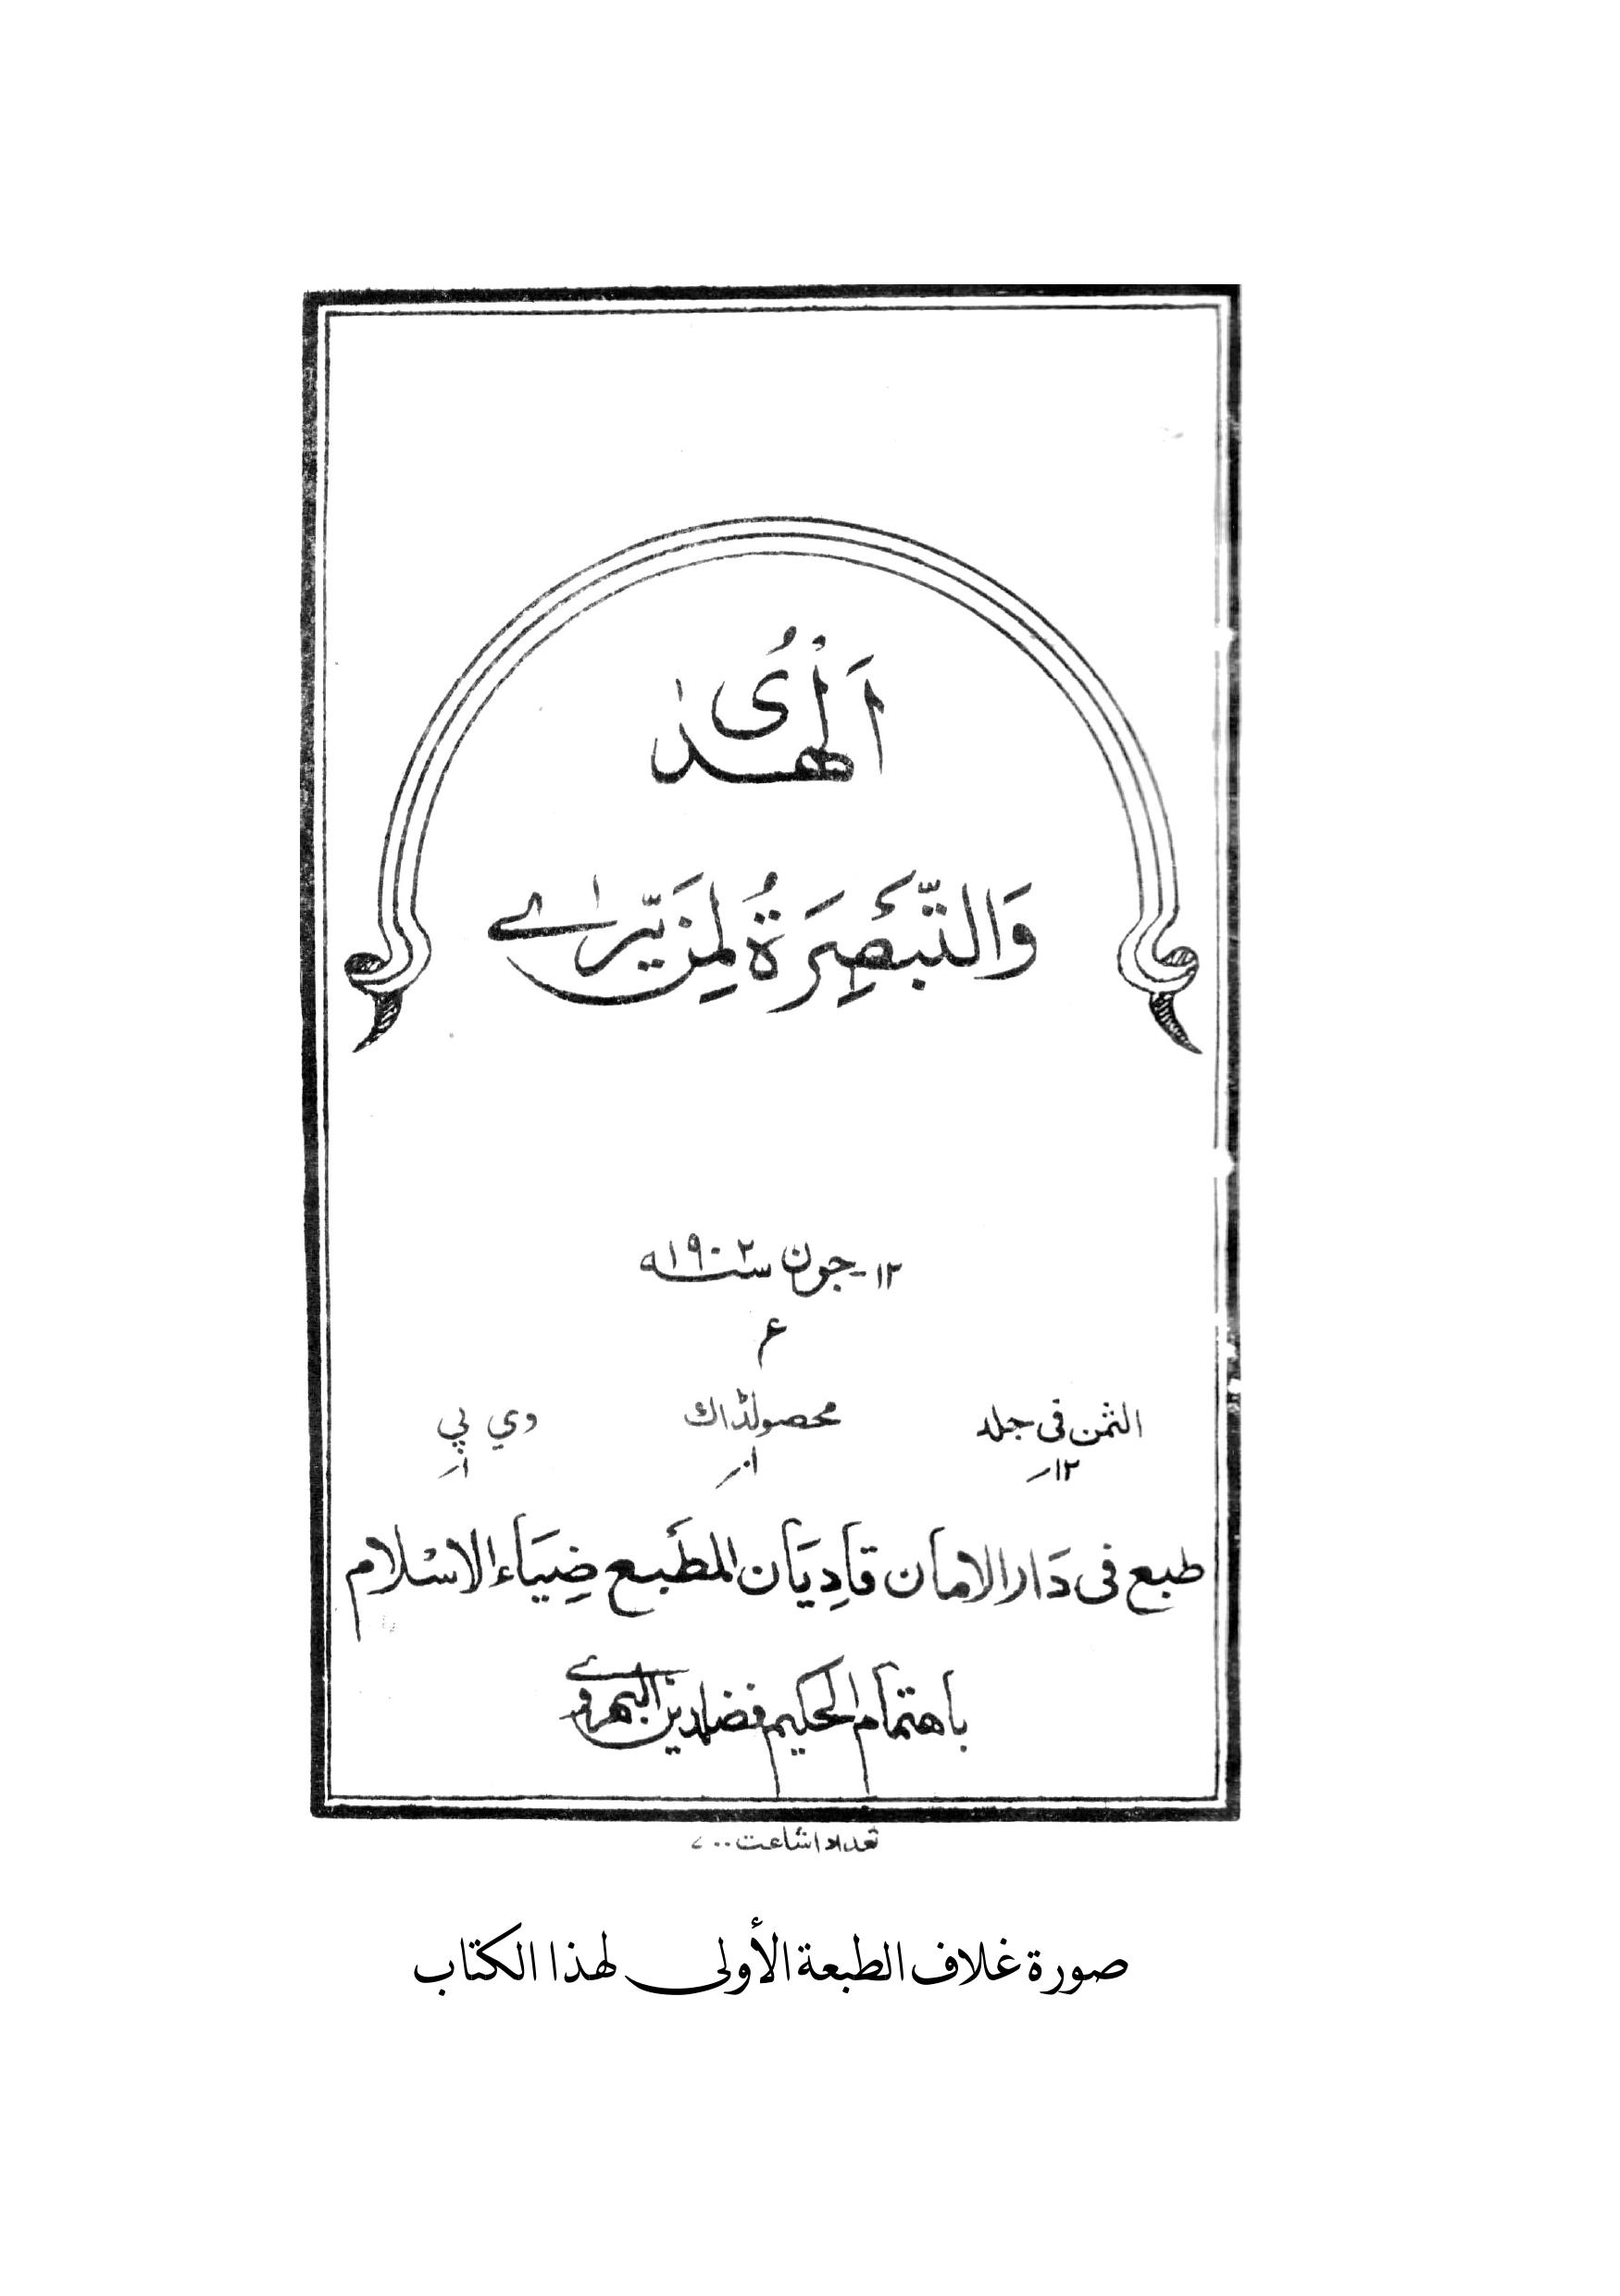 اَلْهُدٰى
وَالتَّبْصِرَةُ لِمَنْ يَّرٰے
۱۲-جون سنه ۱۹۰۲
ء
الثمن في جلد محصولڈاك وي پي
۱۲؍ ۱؍ ۱؍
طبع فى دَار الامان قَادِيَان المطبَع ضِيَاء الاسْلام
باهتمام الحكيم فضلدين البهيروے
تعداد اشاعت ۷۰۰
صورة غلاف الطبعة الأولى لهذا الكتاب